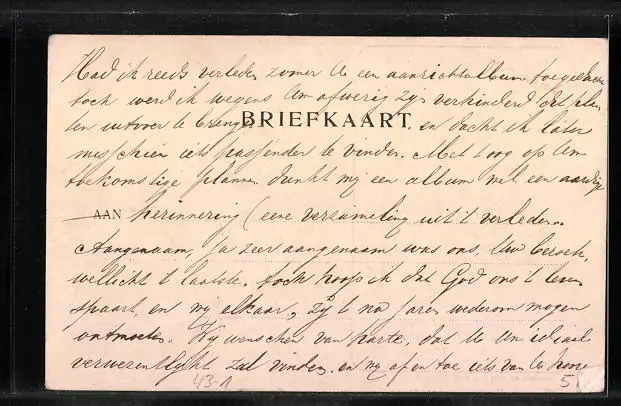 Had ik reeds verleden zomer U een aanzichtalbum toegedacht
toch werd ik wegens Uw afwezig zijn verhinderd dit plan
ten uitvoer te brengen. en dacht ik later
BRIEFKAART.
misschien iets passender te vinden. Met oog op Uw
toekomstige plannen dunkt mij een album wel een aardige
AAN herinnering (eene verzameling uit 't verleden.
Aangenaam, ja zeer aangenaam was ons, Uw bezoek,
wellicht 't laatste. doch hoop ik dat God ons 't leven
spaart, en wij elkaar, zij 't na jaren wederom mogen
ontmoeten. Wij wenschen van harte, dat U Uw ideaal
verwezentlijkt zal vinden. en wij af en toe iets van U hooren
43-1
5